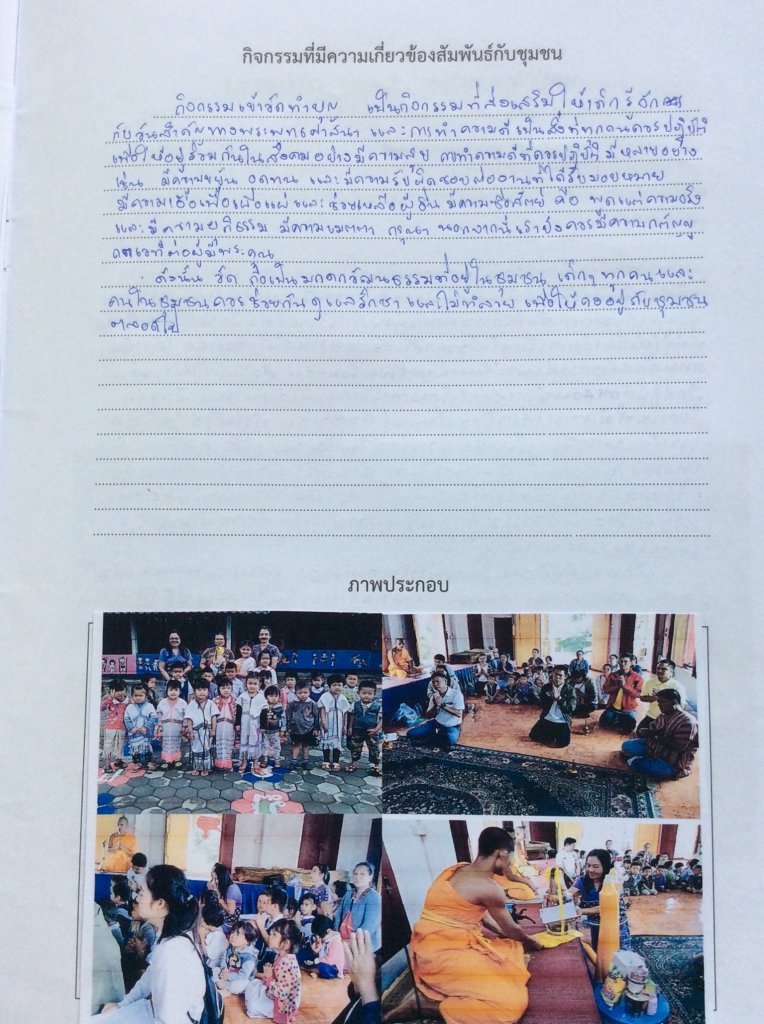 กิจกรรมที่มีความเกี่ยวข้องสัมพันธ์กับชุมชน
กิจกรรมเข้าวัดทำบุญ เป็นกิจกรรมที่ส่งเสริมให้เด็กรู้จัก
กับวันสำคัญทางพระพุทธศาสนา และการทำความดีเป็นสิ่งที่ทุกคนควรปฏิบัติ
เพื่อให้อยู่ร่วมกันในสังคมอย่างมีความสุข การทำความดีที่ควรปฏิบัติ มีหลายอย่าง
เช่น มีความขยัน อดทน และมีความรับผิดชอบต่องานที่ได้รับมอบหมาย
มีความเอื้อเฟื้อเผื่อแผ่และช่วยเหลือผู้อื่น มีความซื่อสัตย์ คือ พูดแต่ความจริง
และมีความยุติธรรม มีความเมตตา กรุณา นอกจากนี้เรายังควรมีความกตัญญู
กตเวทีต่อผู้มีพระคุณ
ดังนั้น วัด ถือเป็นมรดกวัฒนธรรมที่อยู่ในชุมชน เด็กๆ ทุกคนและ
คนในชุมชนควรช่วยกันดูแลรักษา และไม่ทำลาย เพื่อให้คงอยู่กับชุมชน
ตลอดไป
ภาพประกอบ